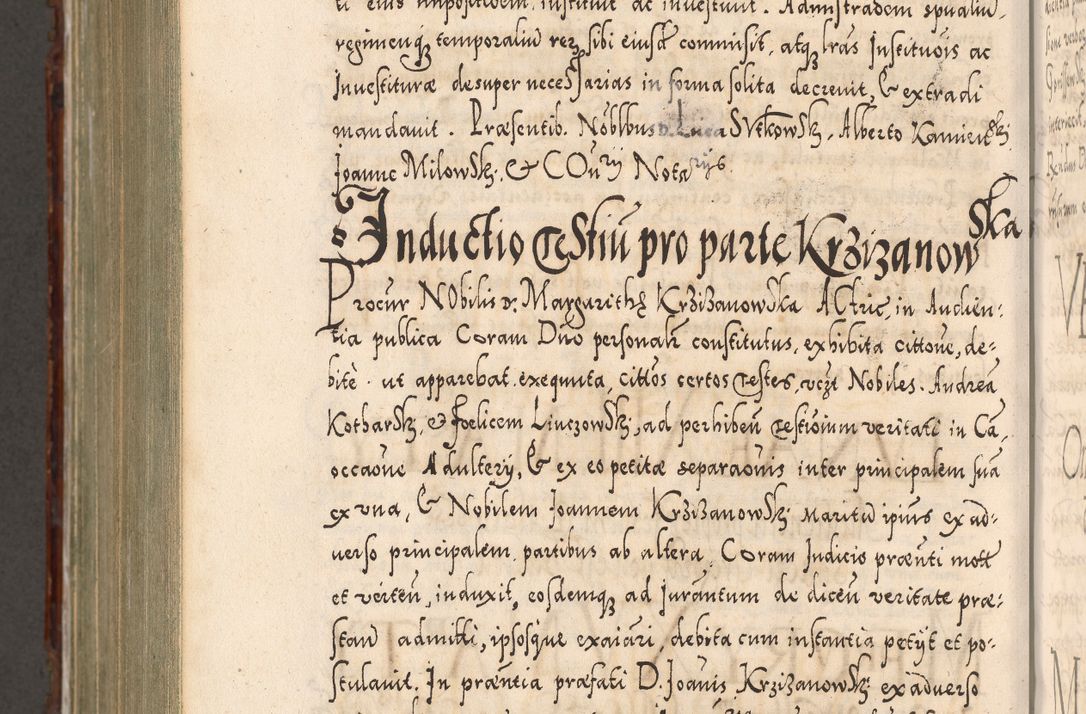 ti eius impositioem, instituit ac investivit. Admistradem spūaliū,
regimenq̢ temporaliū reȝ sibi eiusđ commisit, atq̢ lras Institutiōis ac
Investituræ desuper necessarias in forma solita decrevit, & extradi
mandavit. Præsentib. Noblbus D. Luca Sutkowski, Alberto Kamienski
Joanne Milowski, & COn̄ry Notarys
Inductio testiū pro parte Krzizanowska
Procūr NObilis D. Margarithę Krzizanowska ACtric, in Audien:
tia publica Coram Dn̄o personalr constitutus, exhibita cittōne, de=
bitè ut apparebat exequuta, cittos certos testes, vczt Nobiles. Andreā
Kotharski, & foelicem Linczowski, ad perhibeń testioium veritati in Cā,
occaōne Adultery, & ex eo petitæ separaōnis inter principalem suā
ex una, & Nobilem Joannem Krzizanowski maritū ipius ex ad:
verso principalem partibus ab altera, Coram Iudicio præn̄ti mott
et verteń, induxit, eosdemq̢ ad Iurāntum de diceń veritate præ:
stand admitti, ipsosq̢ue exaiāri, debita cum instantia petijt et po:
stulavit. In præn̄tia præfati D. Joānis Krzizanowski ex adverso